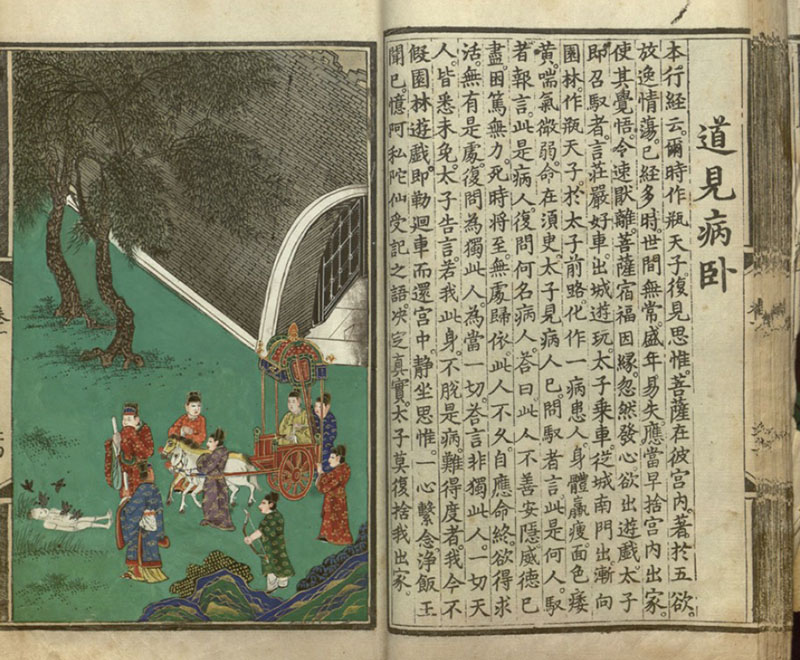 道見病卧
本行経云。爾時作瓶天子。復見思惟。菩薩在彼宮内。著於五欲。
放逸情蕩。已経多時。世間無常。盛年易失。應當早捨宮内出家。
使其覺悟。令速猒離。菩薩宿福因縁。忽然發心。欲出遊戲。太子
即召馭者。言莊嚴好車。出城遊玩。太子乗車。從城南門出漸向
園林。作瓶天子。於太子前路。化作一病患人。身體羸瘦。面色痿
黄。喘氣微弱。命在須臾。太子見病人已。問馭者言。此是何人。馭
者報言。此是病人。復問何名病人。荅曰。此人不善安隱。威徳已
盡。困篤無力。死時将至。無處歸依。此人不久。自應命終。欲得求
活。無有是處。復問為獨此人。為當一切。荅言非獨此人。一切天
人。皆悉未免。太子告言。若我此身。不脫是病。難得度者。我今不
假園林遊戲。即勒迴車。而還宮中。静坐思惟。一心繫念。浄飯王
聞已。憶阿私陀仙受記之語。決定真實。太子莫復捨我出家。